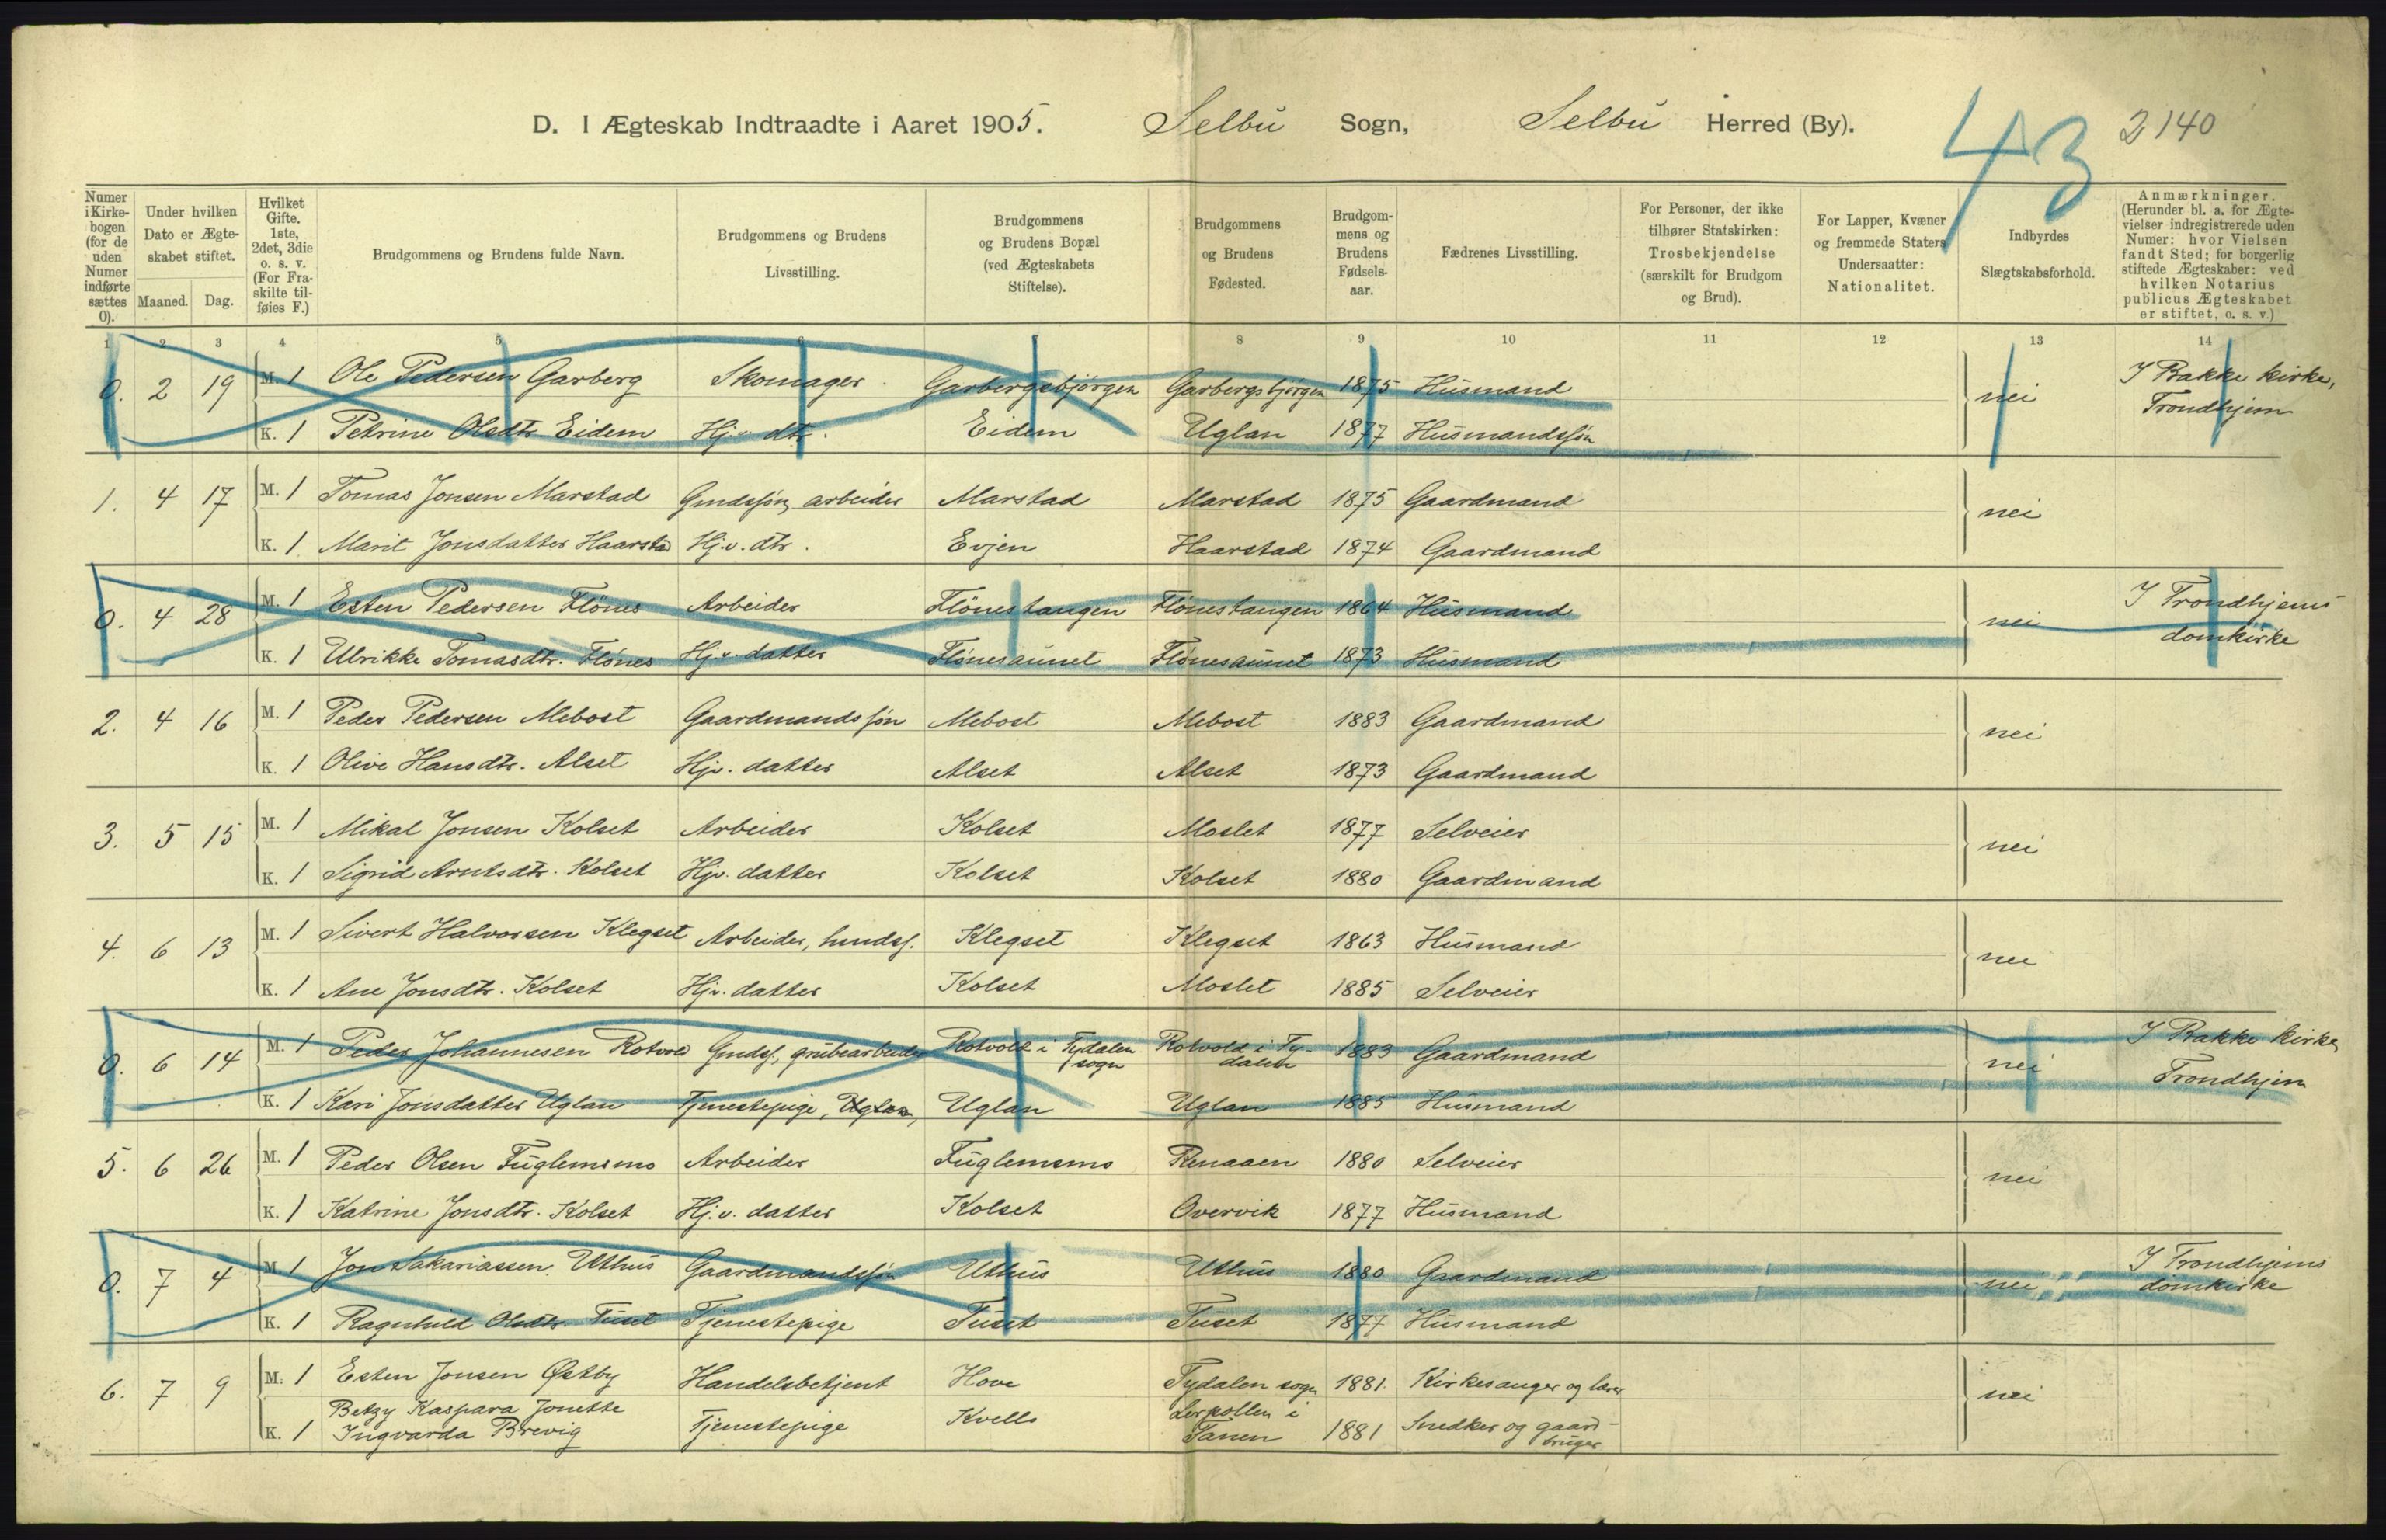 D. I Ægteskab Indtraadte i Aaret 1905. Selbu Sogn, Selbu Herred (By). 43 2140
Numer i Kirkebogen (for de uden Numer indførte sættes 0).
Under hvilken Dato er Ægteskabet stiftet.
Maaned. Dag.
Hvilket Gifte. 1ste, 2det, 3die o. s. v. (For Fraskilte tilføies F.)
Brudgommens og Brudens fulde Navn.
Brudgommens og Brudens Livsstilling.
Brudgommens og Brudens Bopæl (ved Ægteskabets Stiftelse).
Brudgommens og Brudens Fødested.
Brudgommens og Brudens Fødselsaar.
Fædrenes Livsstilling.
For Personer, der ikke tilhører Statskirken: Trosbekjendelse (særskilt for Brudgom og Brud).
For Lapper, Kvæner og fremmede Staters Undersaatter: Nationalitet.
Indbyrdes Slægtskabsforhold.
Anmærkninger. (Herunder bl. a. for Ægtevielser indregistrerede uden Numer: hvor Vielsen fandt Sted; for borgerlig stiftede Ægteskaber: ved hvilken Notarius publicus Ægteskabet er stiftet, o. s. v.)
1 2 3 4 5 6 7 8 9 10 11 12 13 14
0. 2 19 M. 1 Ole Pedersen Garberg Skomager Garbergsbjørgen Garbergsbjørgen 1875 Husmand nei I Bakke kirke, Trondhjem
K. 1 Petrine Olsdtr. Eidem Hj. v. dtr. Eidem Uglan 1877 Husmandssøn
1. 4 17 M. 1 Tomas Jonsen Marstad Gmdssøn, arbeider Marstad Marstad 1875 Gaardmand nei
K. 1 Marit Jonsdatter Haarstad Hj.v. dtr. Evjen Haarstad 1874 Gaardmand
0. 4 28 M. 1 Esten Pedersen Flönes Arbeider Flönestangen Flönestangen 1864 Husmand nei I Trondhjems domkirke
K. 1 Ulrikke Tomasdtr. Flönes Hj.v. datter Flönesaunet Flönesaunet 1873 Husmand
2. 4 16 M. 1 Peder Pedersen Mebost Gaardmandssøn Mebost Mebost 1883 Gaardmand nei
K. 1 Olive Hansdtr. Alset Hjv. datter Alset Alset 1873 Gaardmand
3. 5 15 M. 1 Mikal Jonsen Kolset Arbeider Kolset Moslet 1877 Selveier nei
K. 1 Sigrid Arntsdtr. Kolset Hjv. datter Kolset Kolset 1880 Gaardmand
4. 6 13 M. 1 Sivert Halvorsen Klegset Arbeider, hmdss. Klegset Klegset 1863 Husmand nei
K. 1 Ane Jonsdtr. Kolset Hj.v. datter Kolset Moslet 1885 Selveier
0. 6 14 M. 1 Peder Johannesen Rotvold Gmdss., grubearbeider Rotvold i Tydalen sogn Rotvold i Tydalen 1883 Gaardmand nei I Bakke kirke, Trondhjem
K. 1 Kari Jonsdatter Uglan Tjenestepige, Uglan, Uglan Uglan 1885 Husmand
5. 6 26 M. 1 Peder Olsen Fuglemsmo Arbeider Fuglemsmo Renaaen 1880 Selveier nei
K. 1 Katrine Jonsdtr. Kolset Hj. v. datter Kolset Overvik 1877 Husmand
0. 7 4 M. 1 Jon Sakariassen Uthus Gaardmandssøn Uthus Uthus 1880 Gaardmand nei I Trondhjems domkirke
K. 1 Ragnhild Olsdtr. Tuset Tjenestepige Tuset Tuset 1877 Husmand
6. 7 9 M. 1 Esten Jonsen Østby Handelsbetjent Hove Tydalen sogn 1881. Kirkesanger og lærer nei
K. 1 Betzy Kaspara Jonette Ingvarda Brevig Tjenestepige Kvello Lerpollen i Tanen 1881 Snedker og gaardbruger